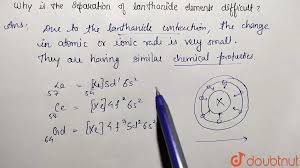 Why is the separation of lanthanide elements difficult?
Ans: Due to the lanthanide contraction, the change
in atomic or ionic radii is very small.
They are having similar chemical properties.
La = [Xe] 5d¹ 6s²
57
Ce = [Xe] 4f² 6s²
58
Gd = [Xe] 4f⁷ 5d¹ 6s²
64
X
doubtnut